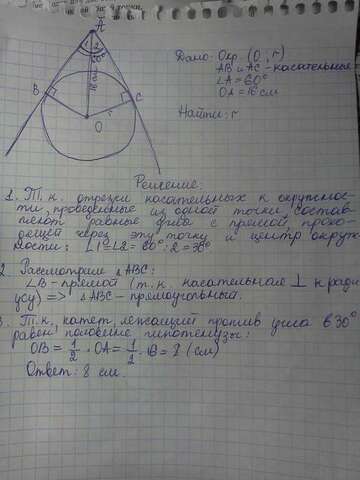 A
1 2
60°
16 см
B
C
r
O
Дано: Окр (O, r)
AB и AC - касательные
∠A = 60°
OA = 16 см
Найти: r
Решение:
1. Т.к. отрезки касательных к окружнос-
ти, проведённые из одной точки состав-
ляют равные углы с прямой прохо-
дящей через эту точку и центр окруж-
ности; ∠1=∠2 = 60°:2=30°
2 Рассмотрим △ABC:
∠B - прямой (т.к. касательная ⊥ к ради
усу) => △ABC - прямоугольный.
3. Т.к. катет, лежащий против угла в 30°
равен половине гипотенузы:
OB = 1/2 · OA = 1/2 · 16 = 8 (см)
Ответ: 8 см.